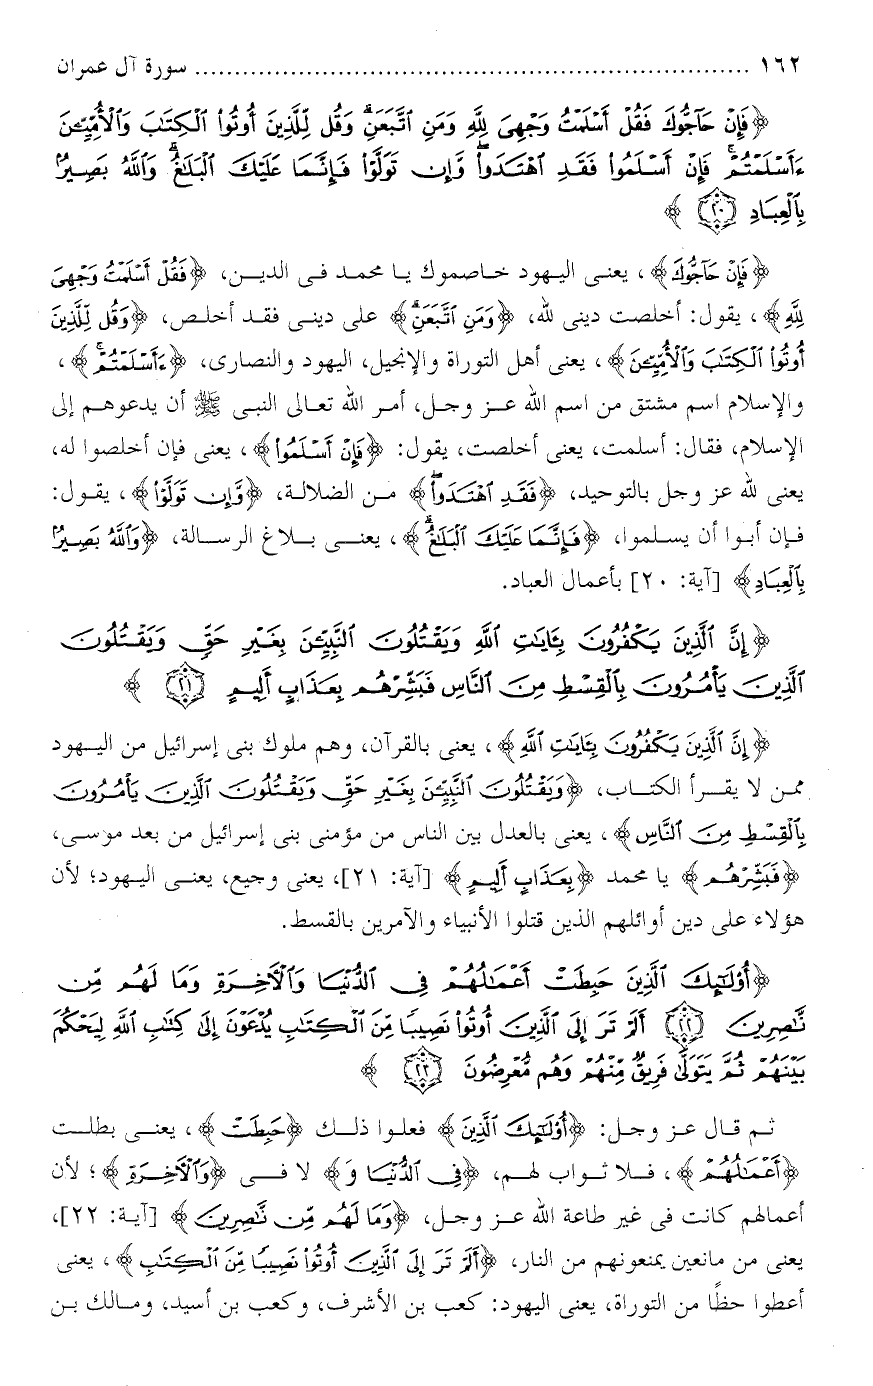 ١٦٢ ........................................................................ سورة آل عمران
﴿فَإِنْ حَآجُّوكَ فَقُلْ أَسْلَمْتُ وَجْهِيَ لِلَّهِ وَمَنِ اتَّبَعَنِ ۗ وَقُل لِّلَّذِينَ أُوتُوا۟ الْكِتَابَ وَالْأُمِّيِّـنَ
ءَأَسْلَمْتُمْ ۚ فَإِنْ أَسْلَمُوا۟ فَقَدِ اهْتَدَوا۟ ۖ وَّإِن تَوَلَّوْا۟ فَإِنَّمَا عَلَيْكَ الْبَلَاغُ ۗ وَاللَّهُ بَصِيرٌۢ
بِالْعِبَادِ ﴿٢٠﴾ ﴾
﴿فَإِنْ حَآجُّوكَ﴾، يعنى اليهود خاصموك يا محمد فى الدين، ﴿فَقُلْ أَسْلَمْتُ وَجْهِيَ
لِلَّهِ﴾، يقول: أخلصت دينى لله، ﴿وَمَنِ اتَّبَعَنِ ۗ﴾ على دينى فقد أخلص، ﴿وَقُل لِّلَّذِينَ
أُوتُوا۟ الْكِتَابَ وَالْأُمِّيِّـنَ﴾، يعنى أهل التوراة والإنجيل، اليهود والنصارى، ﴿ءَأَسْلَمْتُمْ ۚ﴾،
والإسلام اسم مشتق من اسم الله عز وجل، أمر الله تعالى النبى ﷺ أن يدعوهم إلى
الإسلام، فقال: أسلمت، يعنى أخلصت، يقول: ﴿فَإِنْ أَسْلَمُوا۟﴾، يعنى فإن أخلصوا له،
يعنى لله عز وجل بالتوحيد، ﴿فَقَدِ اهْتَدَوا۟ ۖ﴾ من الضلالة، ﴿وَّإِن تَوَلَّوْا۟﴾، يقول:
فإن أبوا أن يسلموا، ﴿فَإِنَّمَا عَلَيْكَ الْبَلَاغُ ۗ﴾، يعنى بلاغ الرسالة، ﴿وَاللَّهُ بَصِيرٌۢ
بِالْعِبَادِ﴾ [آية: ٢٠] بأعمال العباد.
﴿إِنَّ الَّذِينَ يَكْفُرُونَ بِـَٔايَاتِ اللَّهِ وَيَقْتُلُونَ النَّبِيِّـنَ بِغَيْرِ حَقٍّ وَيَقْتُلُونَ
الَّذِينَ يَأْمُرُونَ بِالْقِسْطِ مِنَ النَّاسِ فَبَشِّرْهُم بِعَذَابٍ أَلِيمٍ ﴿٢١﴾ ﴾
﴿إِنَّ الَّذِينَ يَكْفُرُونَ بِـَٔايَاتِ اللَّهِ﴾، يعنى بالقرآن، وهم ملوك بنى إسرائيل من اليهود
ممن لا يقرأ الكتاب، ﴿وَيَقْتُلُونَ النَّبِيِّـنَ بِغَيْرِ حَقٍّ وَيَقْتُلُونَ الَّذِينَ يَأْمُرُونَ
بِالْقِسْطِ مِنَ النَّاسِ﴾، يعنى بالعدل بين الناس من مؤمنى بنى إسرائيل من بعد موسى،
﴿فَبَشِّرْهُم﴾ يا محمد ﴿بِعَذَابٍ أَلِيمٍ﴾ [آية: ٢١]، يعنى وجيع، يعنى اليهود؛ لأن
هؤلاء على دين أوائلهم الذين قتلوا الأنبياء والآمرين بالقسط.
﴿أُوْلَـٰٓئِكَ الَّذِينَ حَبِطَتْ أَعْمَـٰلُهُمْ فِي الدُّنْيَا وَالْأَخِرَةِ وَمَا لَهُم مِّن
نَّـٰصِرِينَ ﴿٢٢﴾ أَلَمْ تَرَ إِلَى الَّذِينَ أُوتُوا۟ نَصِيبًا مِّنَ الْكِتَـٰبِ يُدْعَوْنَ إِلَىٰ كِتَـٰبِ اللَّهِ لِيَحْكُمَ
بَيْنَهُمْ ثُمَّ يَتَوَلَّىٰ فَرِيقٌ مِّنْهُمْ وَهُم مُّعْرِضُونَ ﴿٢٣﴾ ﴾
ثم قال عز وجل: ﴿أُوْلَـٰٓئِكَ الَّذِينَ﴾ فعلوا ذلك ﴿حَبِطَتْ﴾، يعنى بطلت
﴿أَعْمَـٰلُهُمْ﴾، فلا ثواب لهم، ﴿فِي الدُّنْيَا وَ﴾ لا فى ﴿وَالْأَخِرَةِ﴾؛ لأن
أعمالهم كانت فى غير طاعة الله عز وجل، ﴿وَمَا لَهُم مِّن نَّـٰصِرِينَ﴾ [آية: ٢٢]،
يعنى من مانعين يمنعونهم من النار، ﴿أَلَمْ تَرَ إِلَى الَّذِينَ أُوتُوا۟ نَصِيبًا مِّنَ الْكِتَـٰبِ﴾، يعنى
أعطوا حظًا من التوراة، يعنى اليهود: كعب بن الأشرف، وكعب بن أسيد، ومالك بن